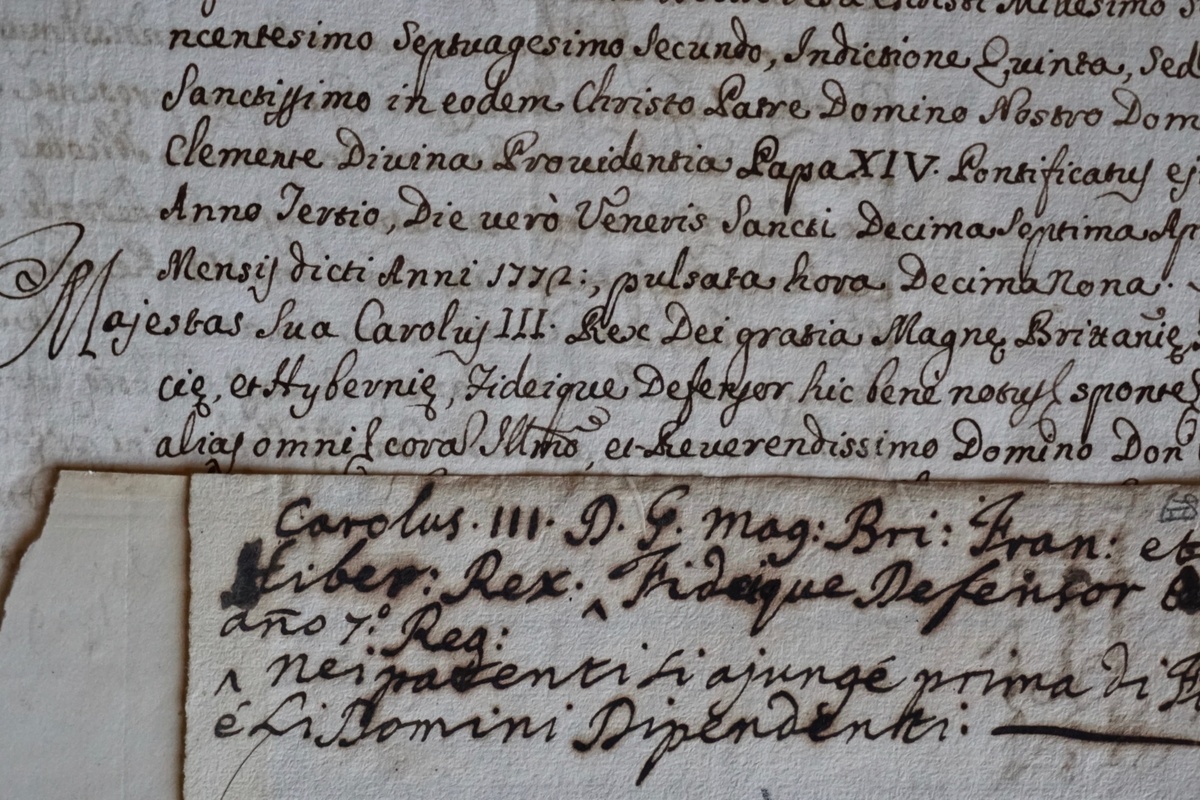 Millesimo S
ncentesimo Septuagesimo Secundo, Indictione Quinta, Sed
Sanctissimo in eodem Christo Patre Domino Nostro Dom
Clemente Diuina Prouidentia Papa XIV. Pontificatus ej
Anno Tertio, Die verò Veneris Sancti Decima Septima Ap
Mensis dicti Anni 1772:, pulsata hora Decima Nona.
Majestas Sua Carolus III. Rex Dei gratia Magnę Brittanię
cię, et Hybernię, Fideique Defensor hic bene notus sponte
alias omni cora Illmo, et Reverendissimo Domino Don
Carolus. III. D. G. Mag: Bri: Fran: et
Hiber: Rex. ^ Fideique Defensor
año 7.º Reg:
^ nei patenti si ajunge prima di F
é Li Domini Dipendenti: